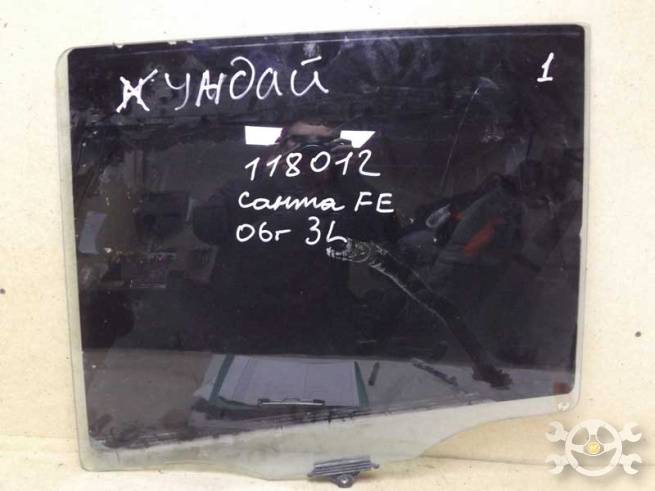 Хундай 1
118012
Санта FE
06г 3L